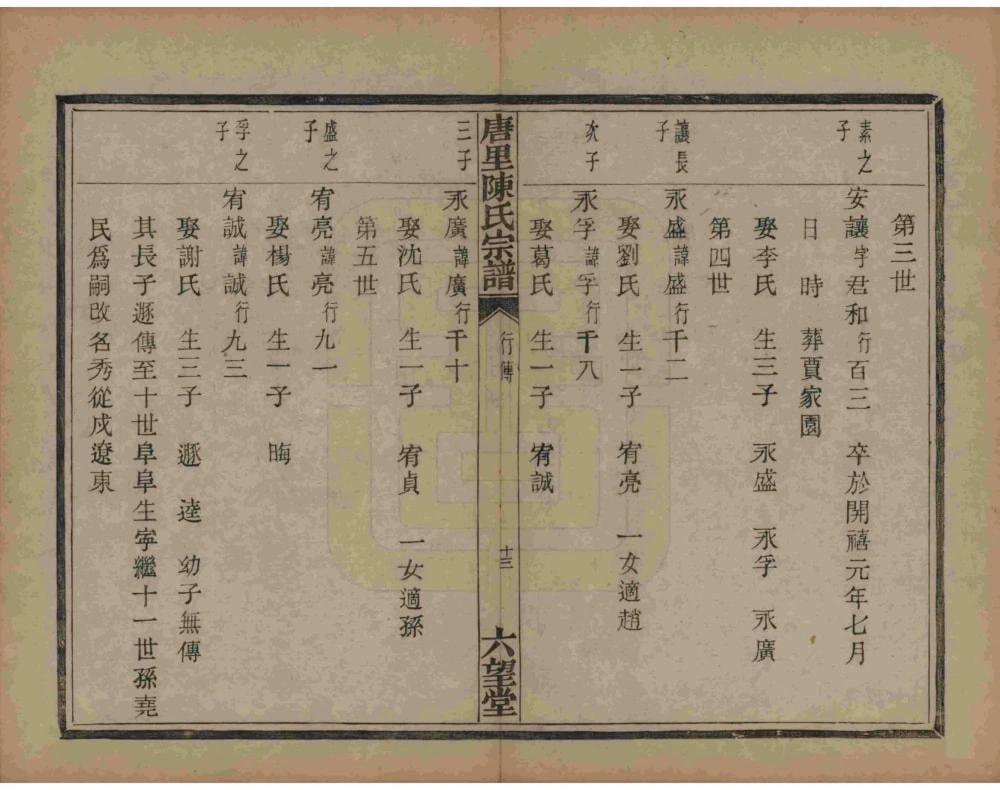 第三世
素之子
安讓字君和行百三 卒於開禧元年七月
日 時 葬賈家園
娶李氏 生三子 永盛 永孚 永廣
第四世
讓長子
永盛諱盛行千二
娶劉氏 生一子 宥亮 一女適趙
次子
永孚諱孚行千八
娶葛氏 生一子 宥誠
唐里陳氏宗譜 行傳 十三 六望堂
三子
永廣諱廣行千十
娶沈氏 生一子 宥貞 一女適孫
第五世
盛之子
宥亮諱亮行九一
娶楊氏 生一子 晦
孚之子
宥誠諱誠行九三
娶謝氏 生三子 遯 逵 幼子無傳
其長子遯傳至十世阜阜生寜繼十一世孫堯
民爲嗣改名秀從戍遼東